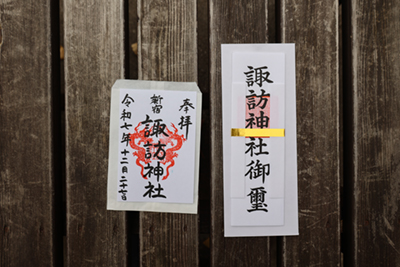 奉拝
新宿
諏訪神社
令和七年十二月二十七日
諏訪神社御璽